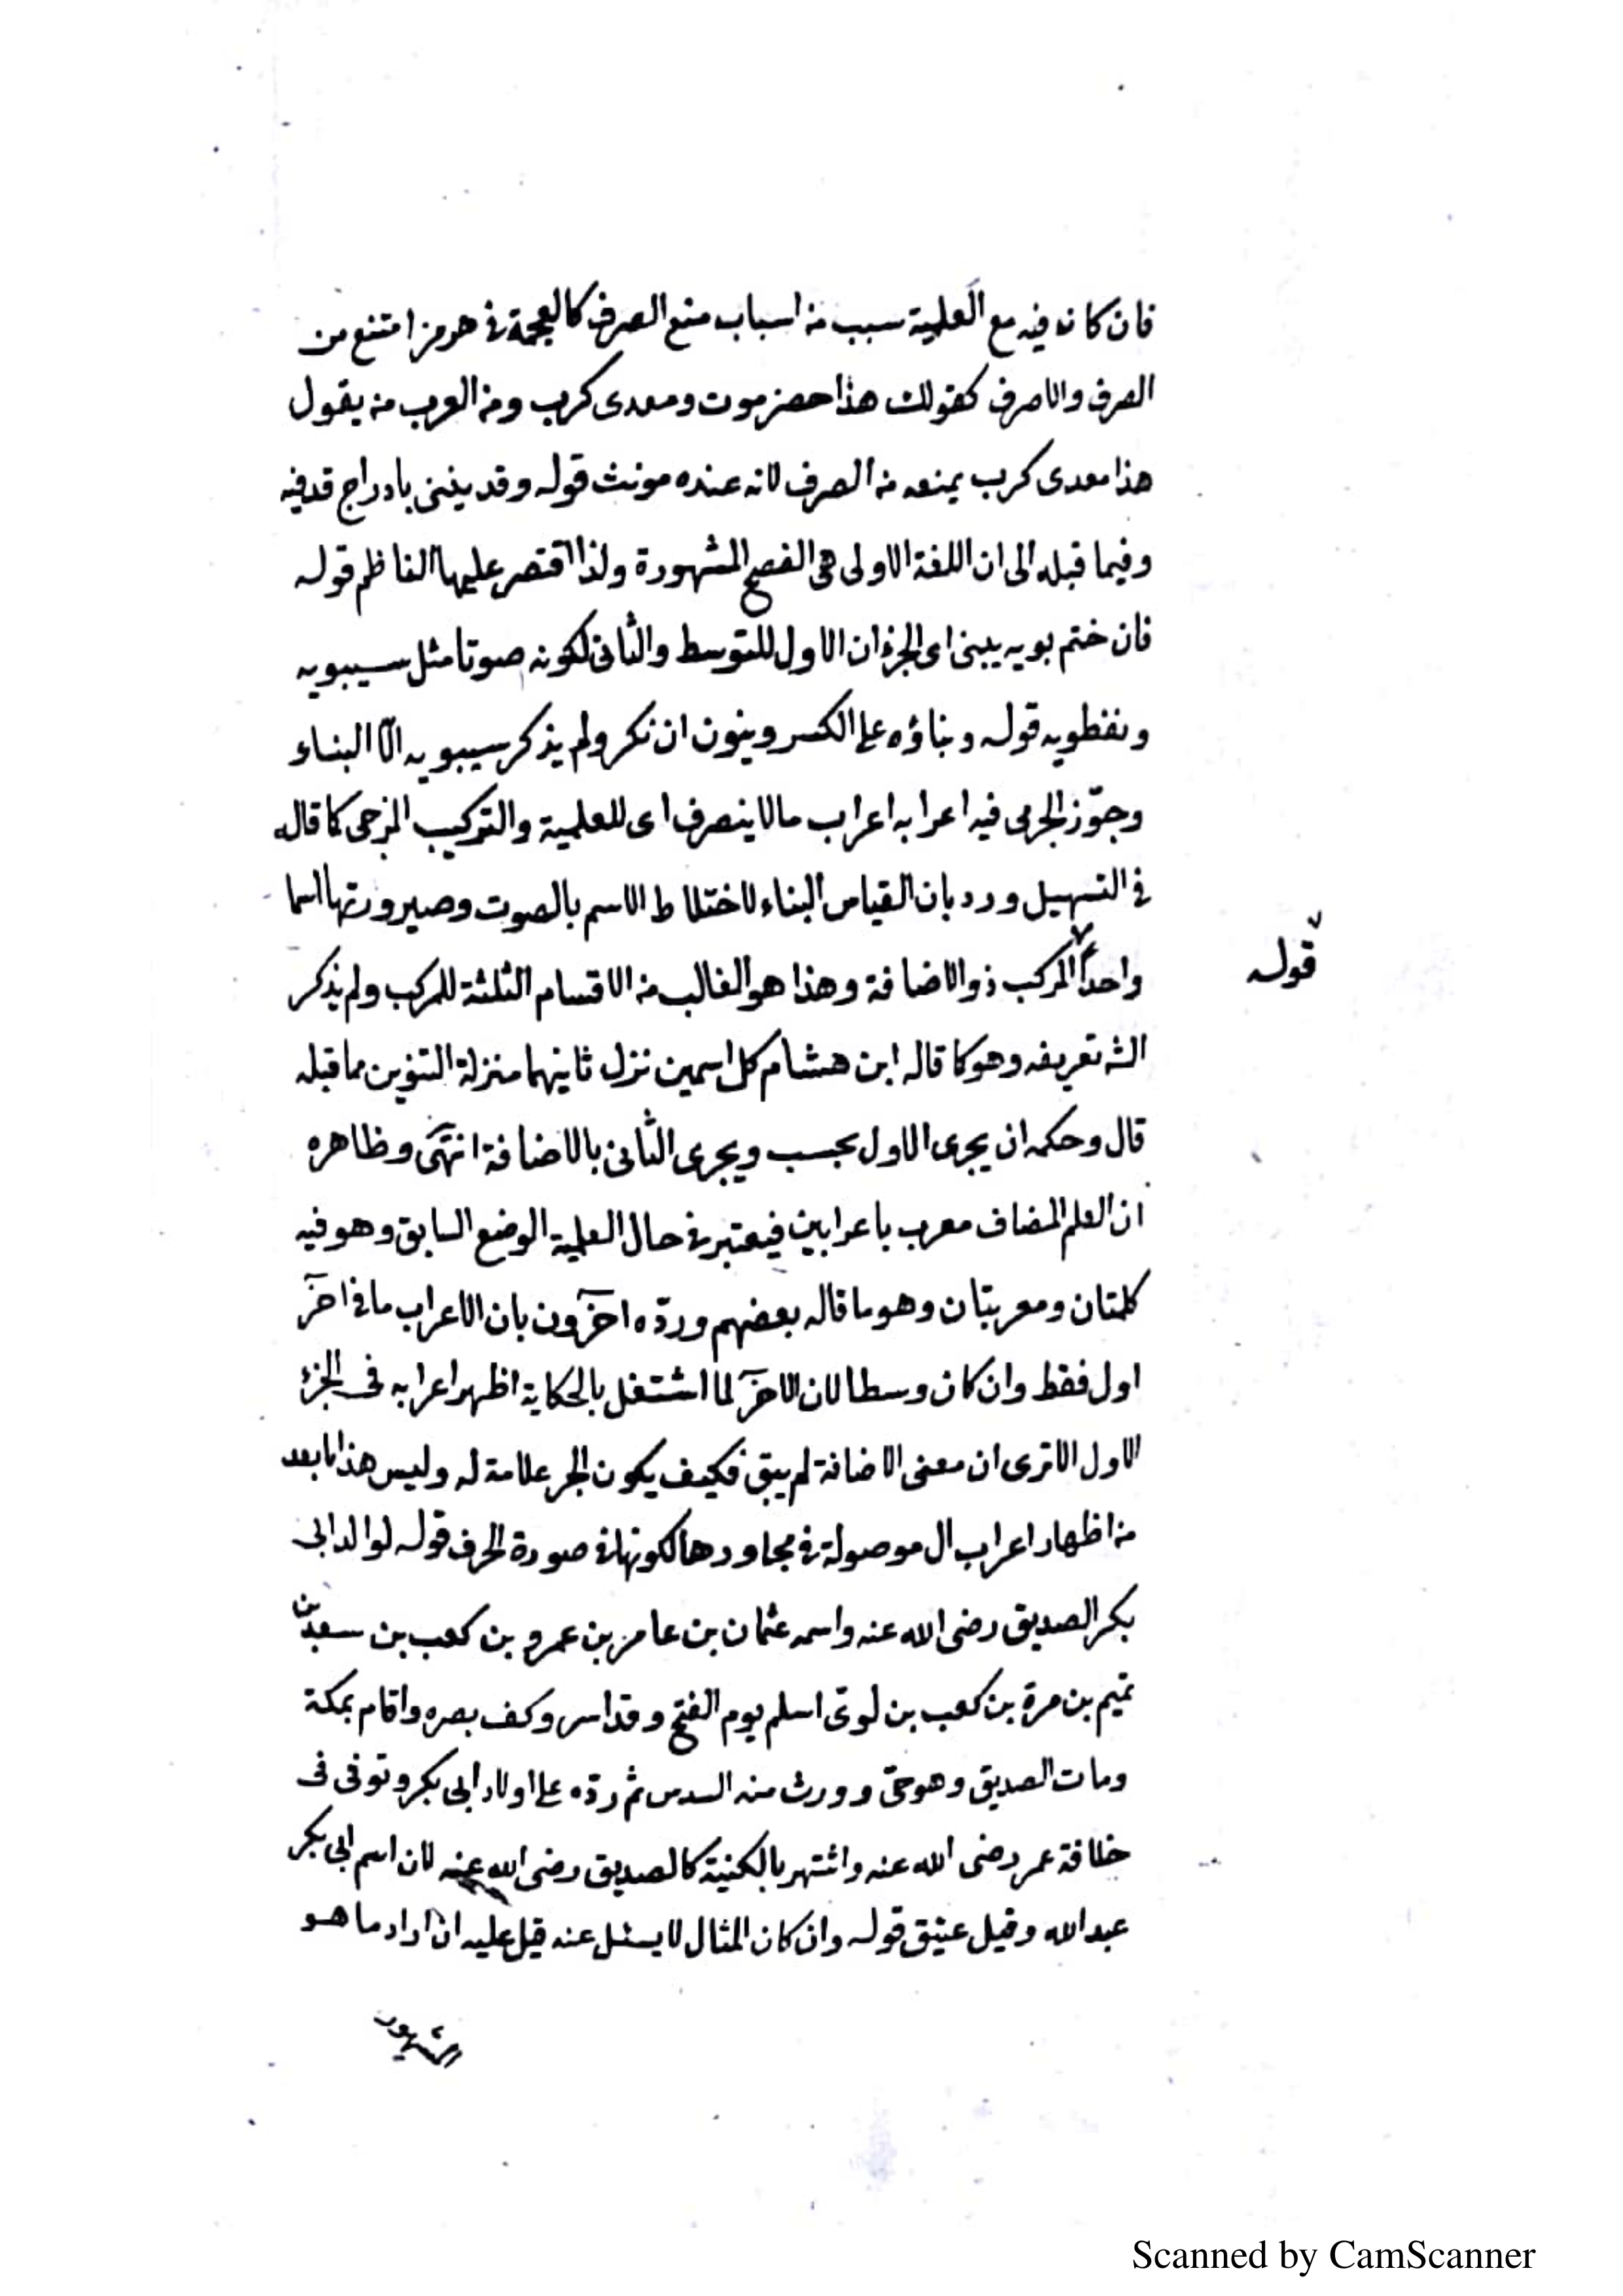 فان كان فيه مع العلمية سبب من اسباب منع الصرف كالعجمة في هرمز امتنع من
الصرف والاصرف كقولك هذا حضرموت ومعدى كرب ومن العرب من يقول
هذا معدى كرب يمنعه من الصرف لانه عنده مونث قوله وقد يبنى بادراج قد فيه
وفيما قبله الى ان اللغة الاولى هى الفصحى المشهورة ولذا اقتصر عليها الناظم قوله
فان ختم بويه يبنى اى الجزءان الاول للتوسط والثانى لكونه صوتا مثل سيبويه
ونفطويه قوله وبناؤه على الكسر وينون ان نكر ولم يذكر سيبويه الّا البناء
وجوّز الجرمى فيه اعرابه اعراب مالاينصرف اى للعلمية والتركيب المزجى كما قاله
فى التسهيل ورد بان القياس البناء لاختلاط الاسم بالصوت وصيرورتها اسما
قوله
واحداً المركب ذوالاضافة وهذا هو الغالب من الاقسام الثلثة للمركب ولم يذكر
الشه تعريفه وهو كما قاله ابن هشام كل اسمين نزل ثانيهما منزلة التنوين مما قبله
قال وحكمه ان يجرى الاول بحسب ويجرى الثانى بالاضافة انتهى وظاهره
ان العلم المضاف معرب باعرابين فيعتبر في حال العلمية الوضع السابق وهو فيه
كلمتان ومعربتان وهو ما قاله بعضهم وردّه اخرون بان الاعراب ما في اخر
اول فقط وان كان وسطا لان الاخر لما اشتغل بالحكاية اظهر اعرابه فى الجزء
الاول الاترى ان معنى الاضافة لم يبق فكيف يكون الجر علامة له وليس هذا بابعد
من اظهار اعراب ال موصولة في مجاورها لكونها في صورة الحرف قوله لوالد ابى
بكر الصديق رضى الله عنه واسمه عثمان بن عامر بن عمرو بن كعب بن سعد بن
تميم بن مرة بن كعب بن لوىّ اسلم يوم الفتح وقد اسر وكف بصره واقام بمكة
ومات الصديق وهو حىّ وورث منه السدس ثم ردّه على اولاد ابى بكر وتوفى فى
خلافة عمر رضى الله عنه واشتهر بالكنية كالصديق رضى الله عنه لان اسم ابى بكر
عبد الله وقيل عتيق قوله وان كان المثال لا يسئل عنه قيل عليه ان اراد ما هو
المشهور
Scanned by CamScanner